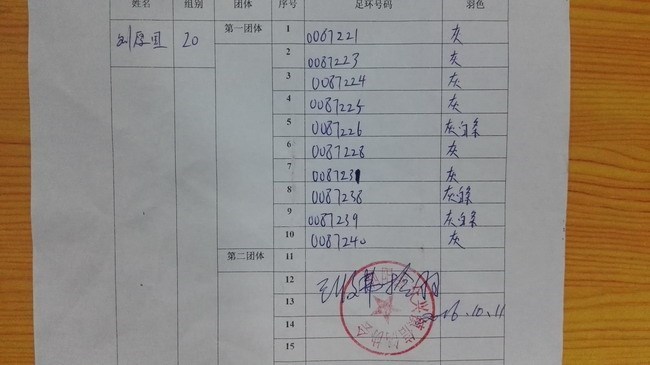 姓名 组别 团体 序号 足环号码 羽色
20 第一团体 1 0087221 灰
2 0087223 灰
3 0087224 灰
4 0087225 灰
5 0087226 灰白条
6 0087228 灰
7 0087231 灰
8 0087238 灰白条
9 0087239 灰白条
10 0087240 灰
第二团体 11
12
13
2016.10.11
14
15